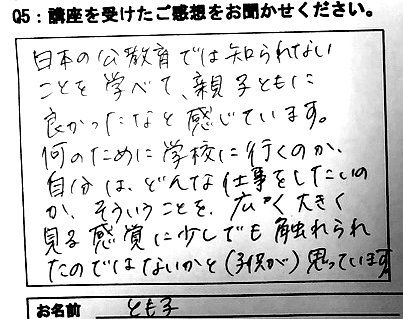 Q5：講座を受けたご感想をお聞かせください。
日本の公教育では知られない
ことを学べて、親子ともに
良かったなと感じています。
何のために学校に行くのか、
自分は、どんな仕事をしたいの
か、そういうことを、広く大きく
見る感覚に少しでも触れられ
たのではないかと(子供が)思っています
お名前 とも子